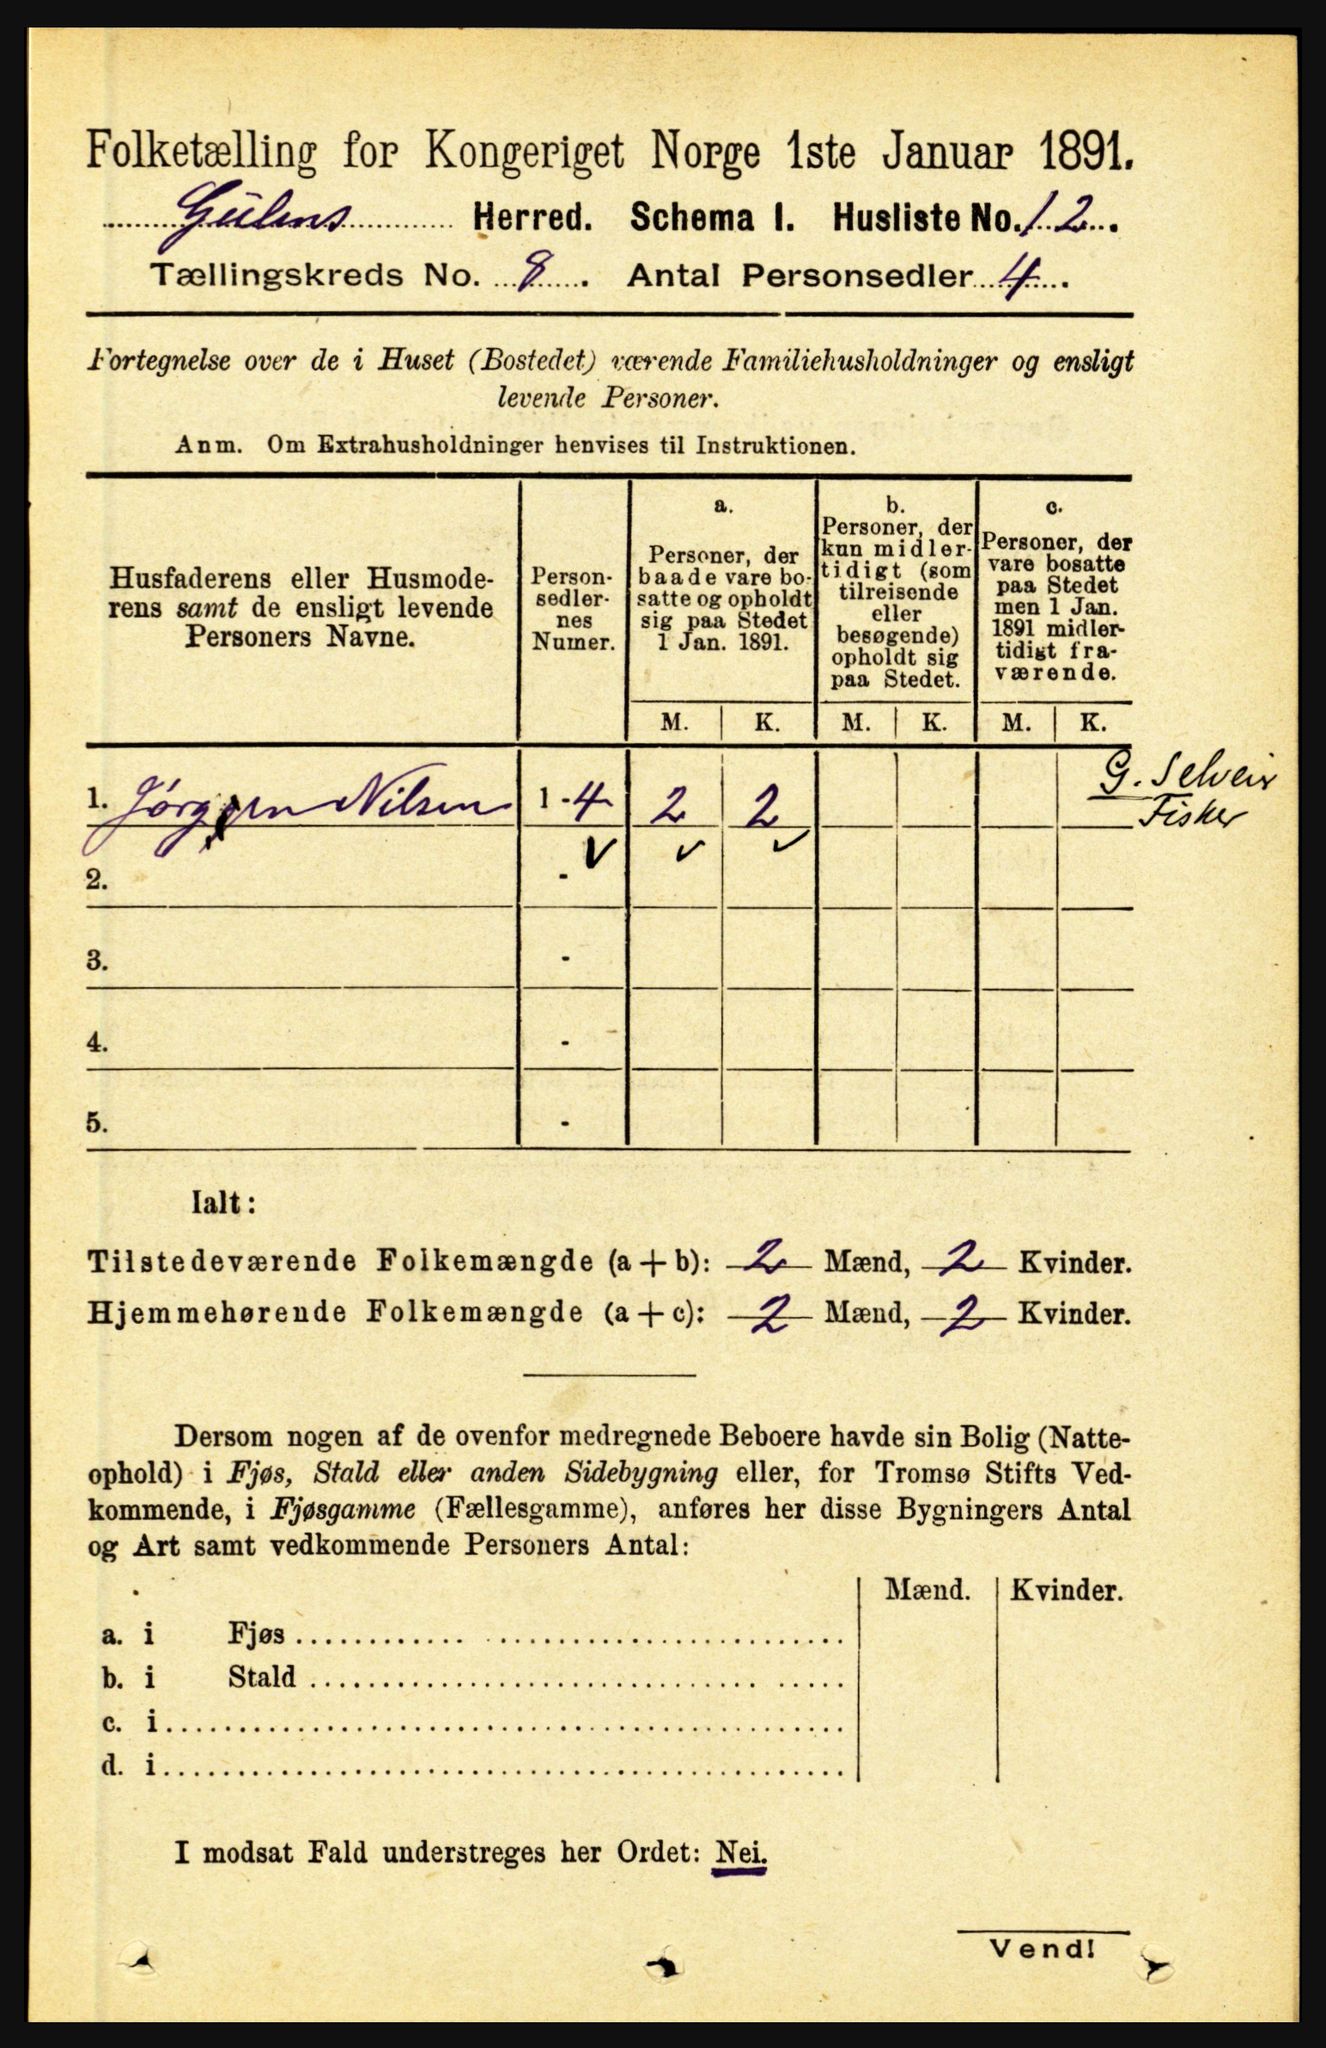 Folketælling for Kongeriget Norge 1ste Januar 1891.
Gulens Herred. Schema I. Husliste No. 12.
Tællingskreds No. 8. Antal Personsedler 4.
Fortegnelse over de i Huset (Bostedet) værende Familiehusholdninger og ensligt
levende Personer.
Anm. Om Extrahusholdninger henvises til Instruktionen.
Husfaderens eller Husmode-
rens samt de ensligt levende
Personers Navne.
Person-
sedler-
nes
Numer.
a.
Personer, der
baade vare bo-
satte og opholdt
sig paa Stedet
1 Jan. 1891.
b.
Personer, der
kun midler-
tidigt (som
tilreisende
eller
besøgende)
opholdt sig
paa Stedet.
c.
Personer, der
vare bosatte
paa Stedet
men 1 Jan.
1891 midler-
tidigt fra-
værende.
M. K. M. K. M. K.
1. Jørgen Nilsen 1-4 2 2 G. Selveir
Fisker
2. -
3. -
4. -
5. -
Ialt:
Tilstedeværende Folkemængde (a+b): 2 Mænd, 2 Kvinder.
Hjemmehørende Folkemængde (a+c): 2 Mænd, 2 Kvinder.
Dersom nogen af de ovenfor medregnede Beboere havde sin Bolig (Natte-
ophold) i Fjøs, Stald eller anden Sidebygning eller, for Tromsø Stifts Ved-
kommende, i Fjøsgamme (Fællesgamme), anføres her disse Bygningers Antal
og Art samt vedkommende Personers Antal:
Mænd. Kvinder.
a. i Fjøs
b. i Stald
c. i
d. i
I modsat Fald understreges her Ordet: Nei.
Vend!